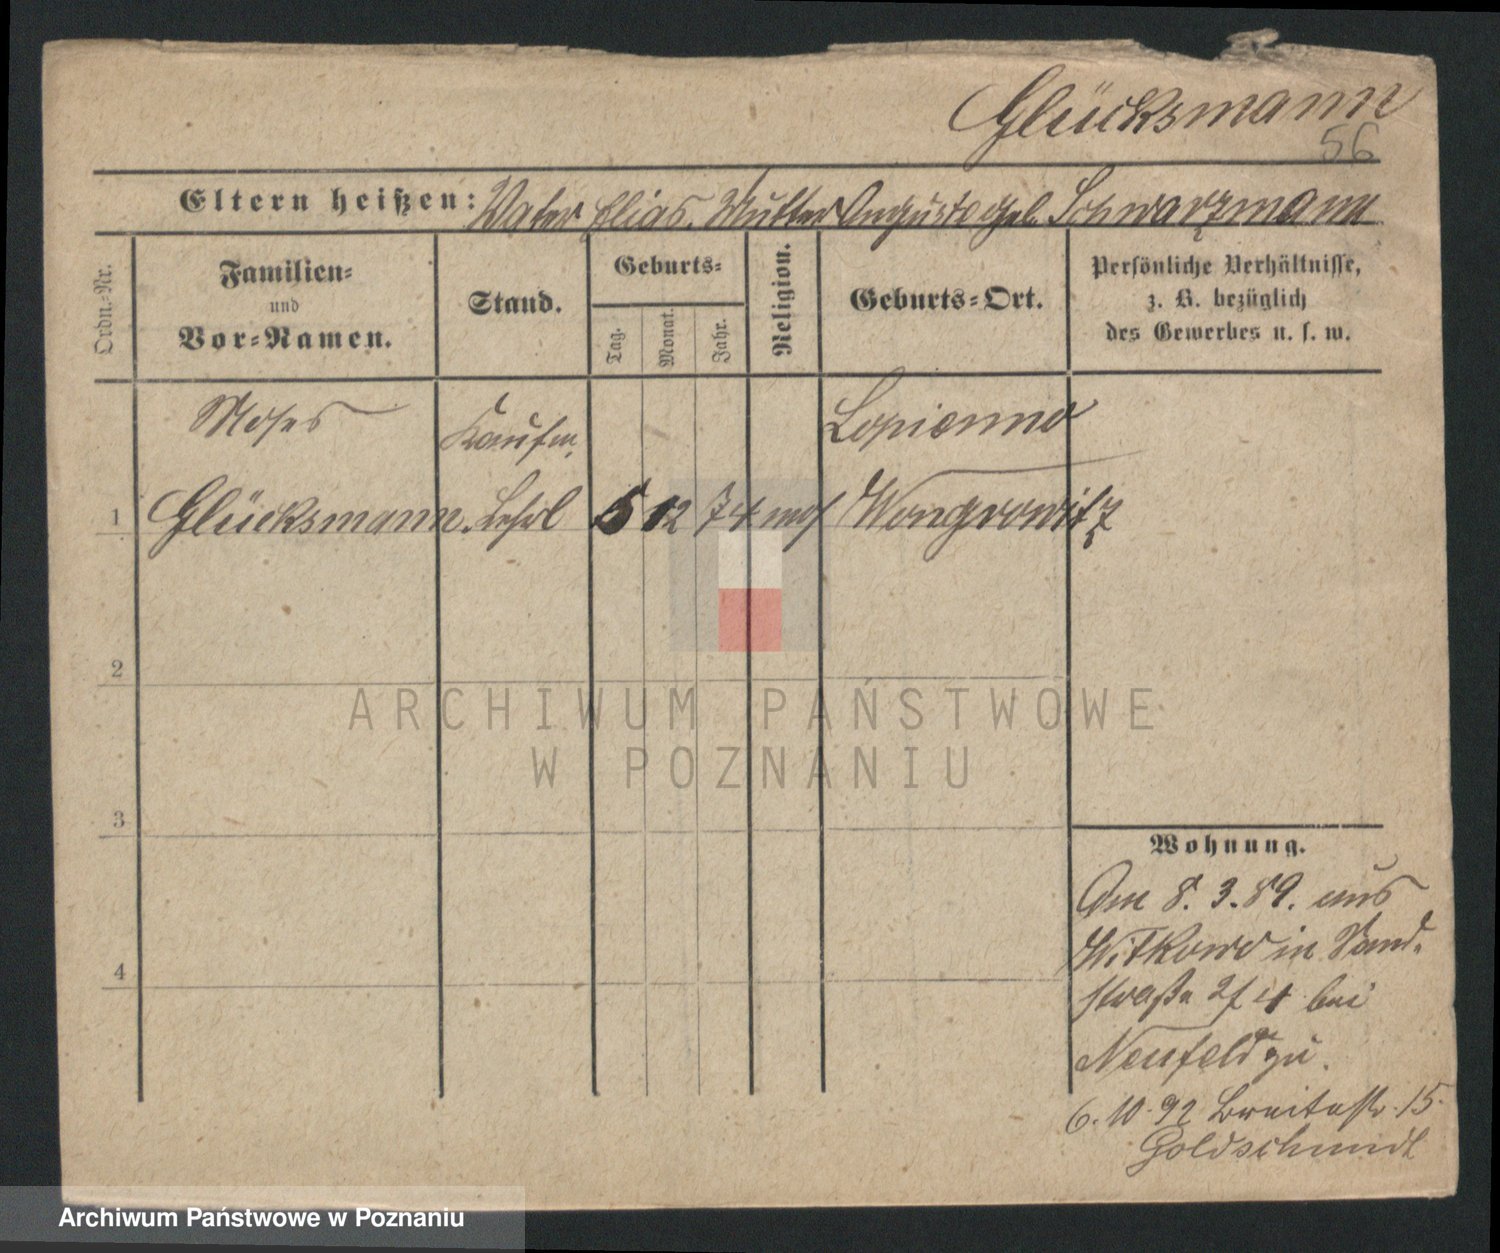 Glücksmann
56
Eltern heißen: Vater Elias. Mutter Auguste geb. Schwarzmann
Ordn.-Nr.
Familien-
und
Vor-Namen.
Stand.
Geburts-
Tag.
Monat.
Jahr.
Religion.
Geburts-Ort.
Persönliche Verhältnisse,
z. B. bezüglich
des Gewerbes u. s. w.
Moses Kaufm. Lopienno
1 Glücksmann. Lehrl 5 12 74 mos Wongrowitz
2
3
4
Wohnung.
Am 8. 3. 89. aus
Witkowo in Sand-
straße bei
Neufeld zu.
6. 10. 92 Breitestr. 15.
Goldschmidt
ARCHIWUM PAŃSTWOWE
W POZNANIU
Archiwum Państwowe w Poznaniu